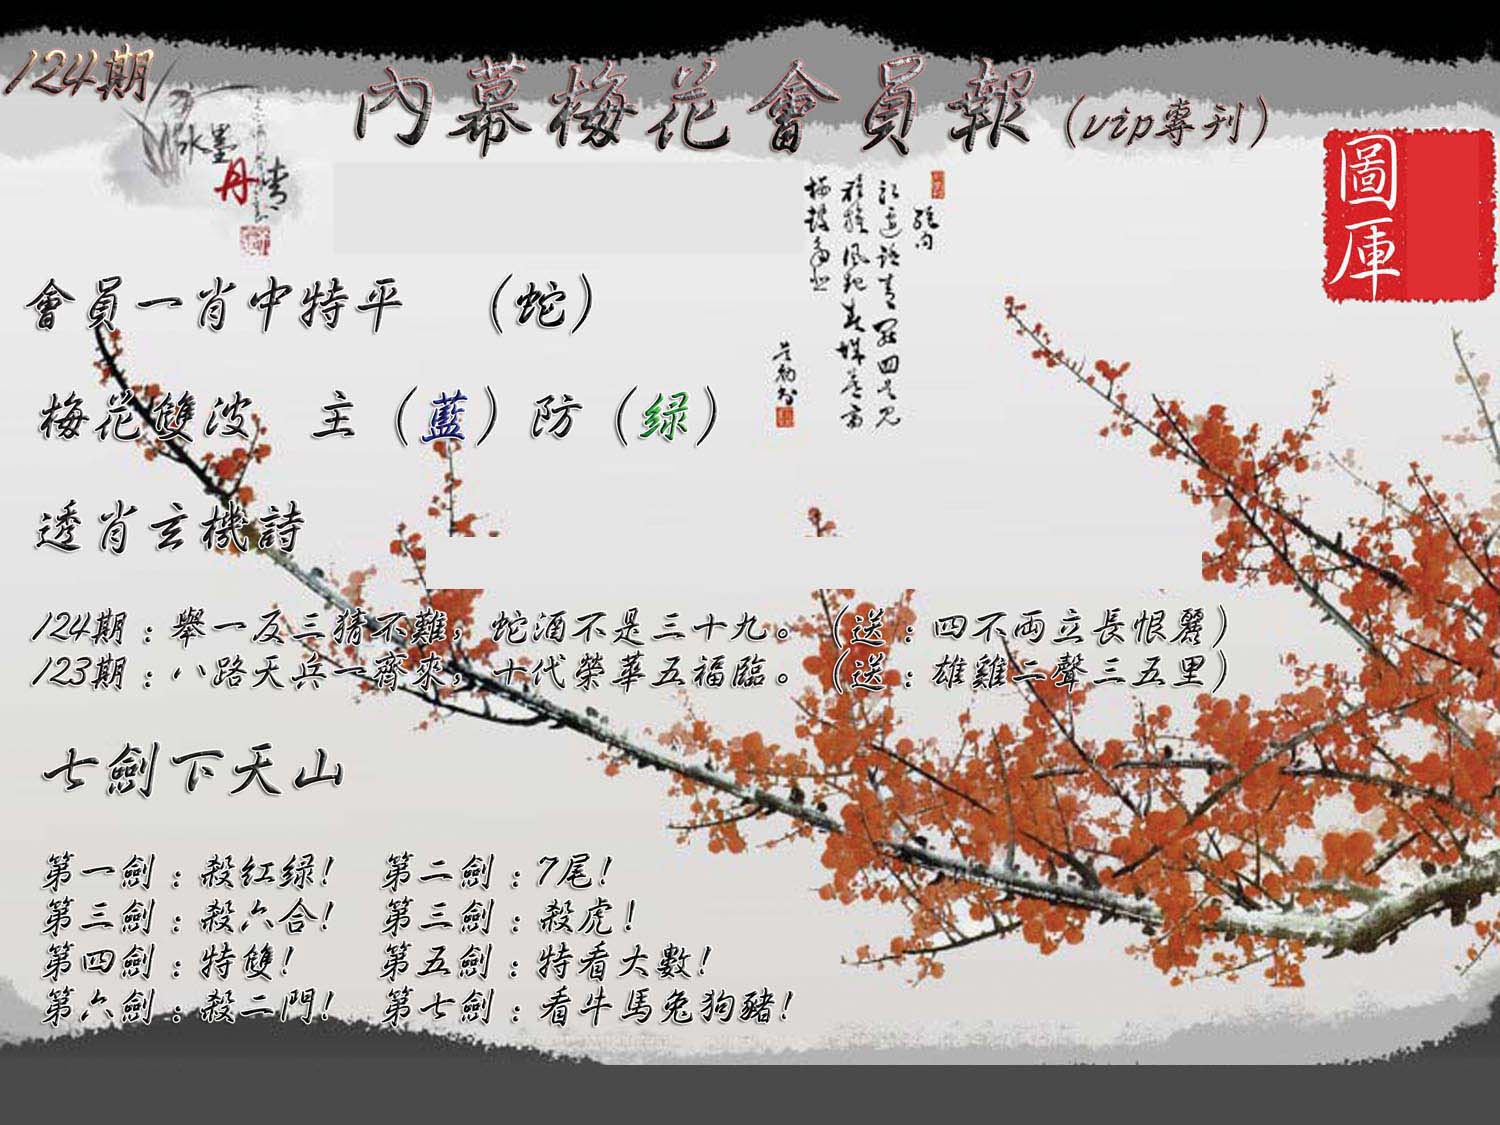 124期
內幕梅花會員報（vip專刊）
水墨
丹青
圖庫
會員一肖中特平 （蛇）
梅花雙波 主（藍）防（绿）
透肖玄機詩
124期：舉一反三猜不難，蛇酒不是三十九。（送：四不兩立長恨麗）
123期：八路天兵一齊來，十代榮華五福臨。（送：雄雞二聲三五里）
七劍下天山
第一劍：殺红绿！ 第二劍：7尾！
第三劍：殺六合！ 第三劍：殺虎！
第四劍：特雙！ 第五劍：特看大數！
第六劍：殺二門！ 第七劍：看牛馬兔狗豬！